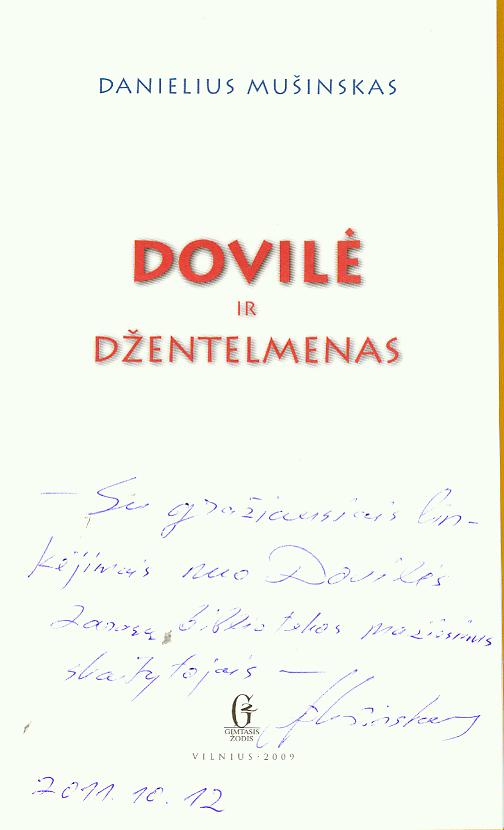 DANIELIUS MUŠINSKAS
DOVILĖ
IR
DŽENTELMENAS
– Su gražiausiais lin-
kėjimais nuo Dovilės
Zarasų bibliotekos
skaitytojais –
GIMTASIS
ŽODIS
VILNIUS·2009
2011.10.12